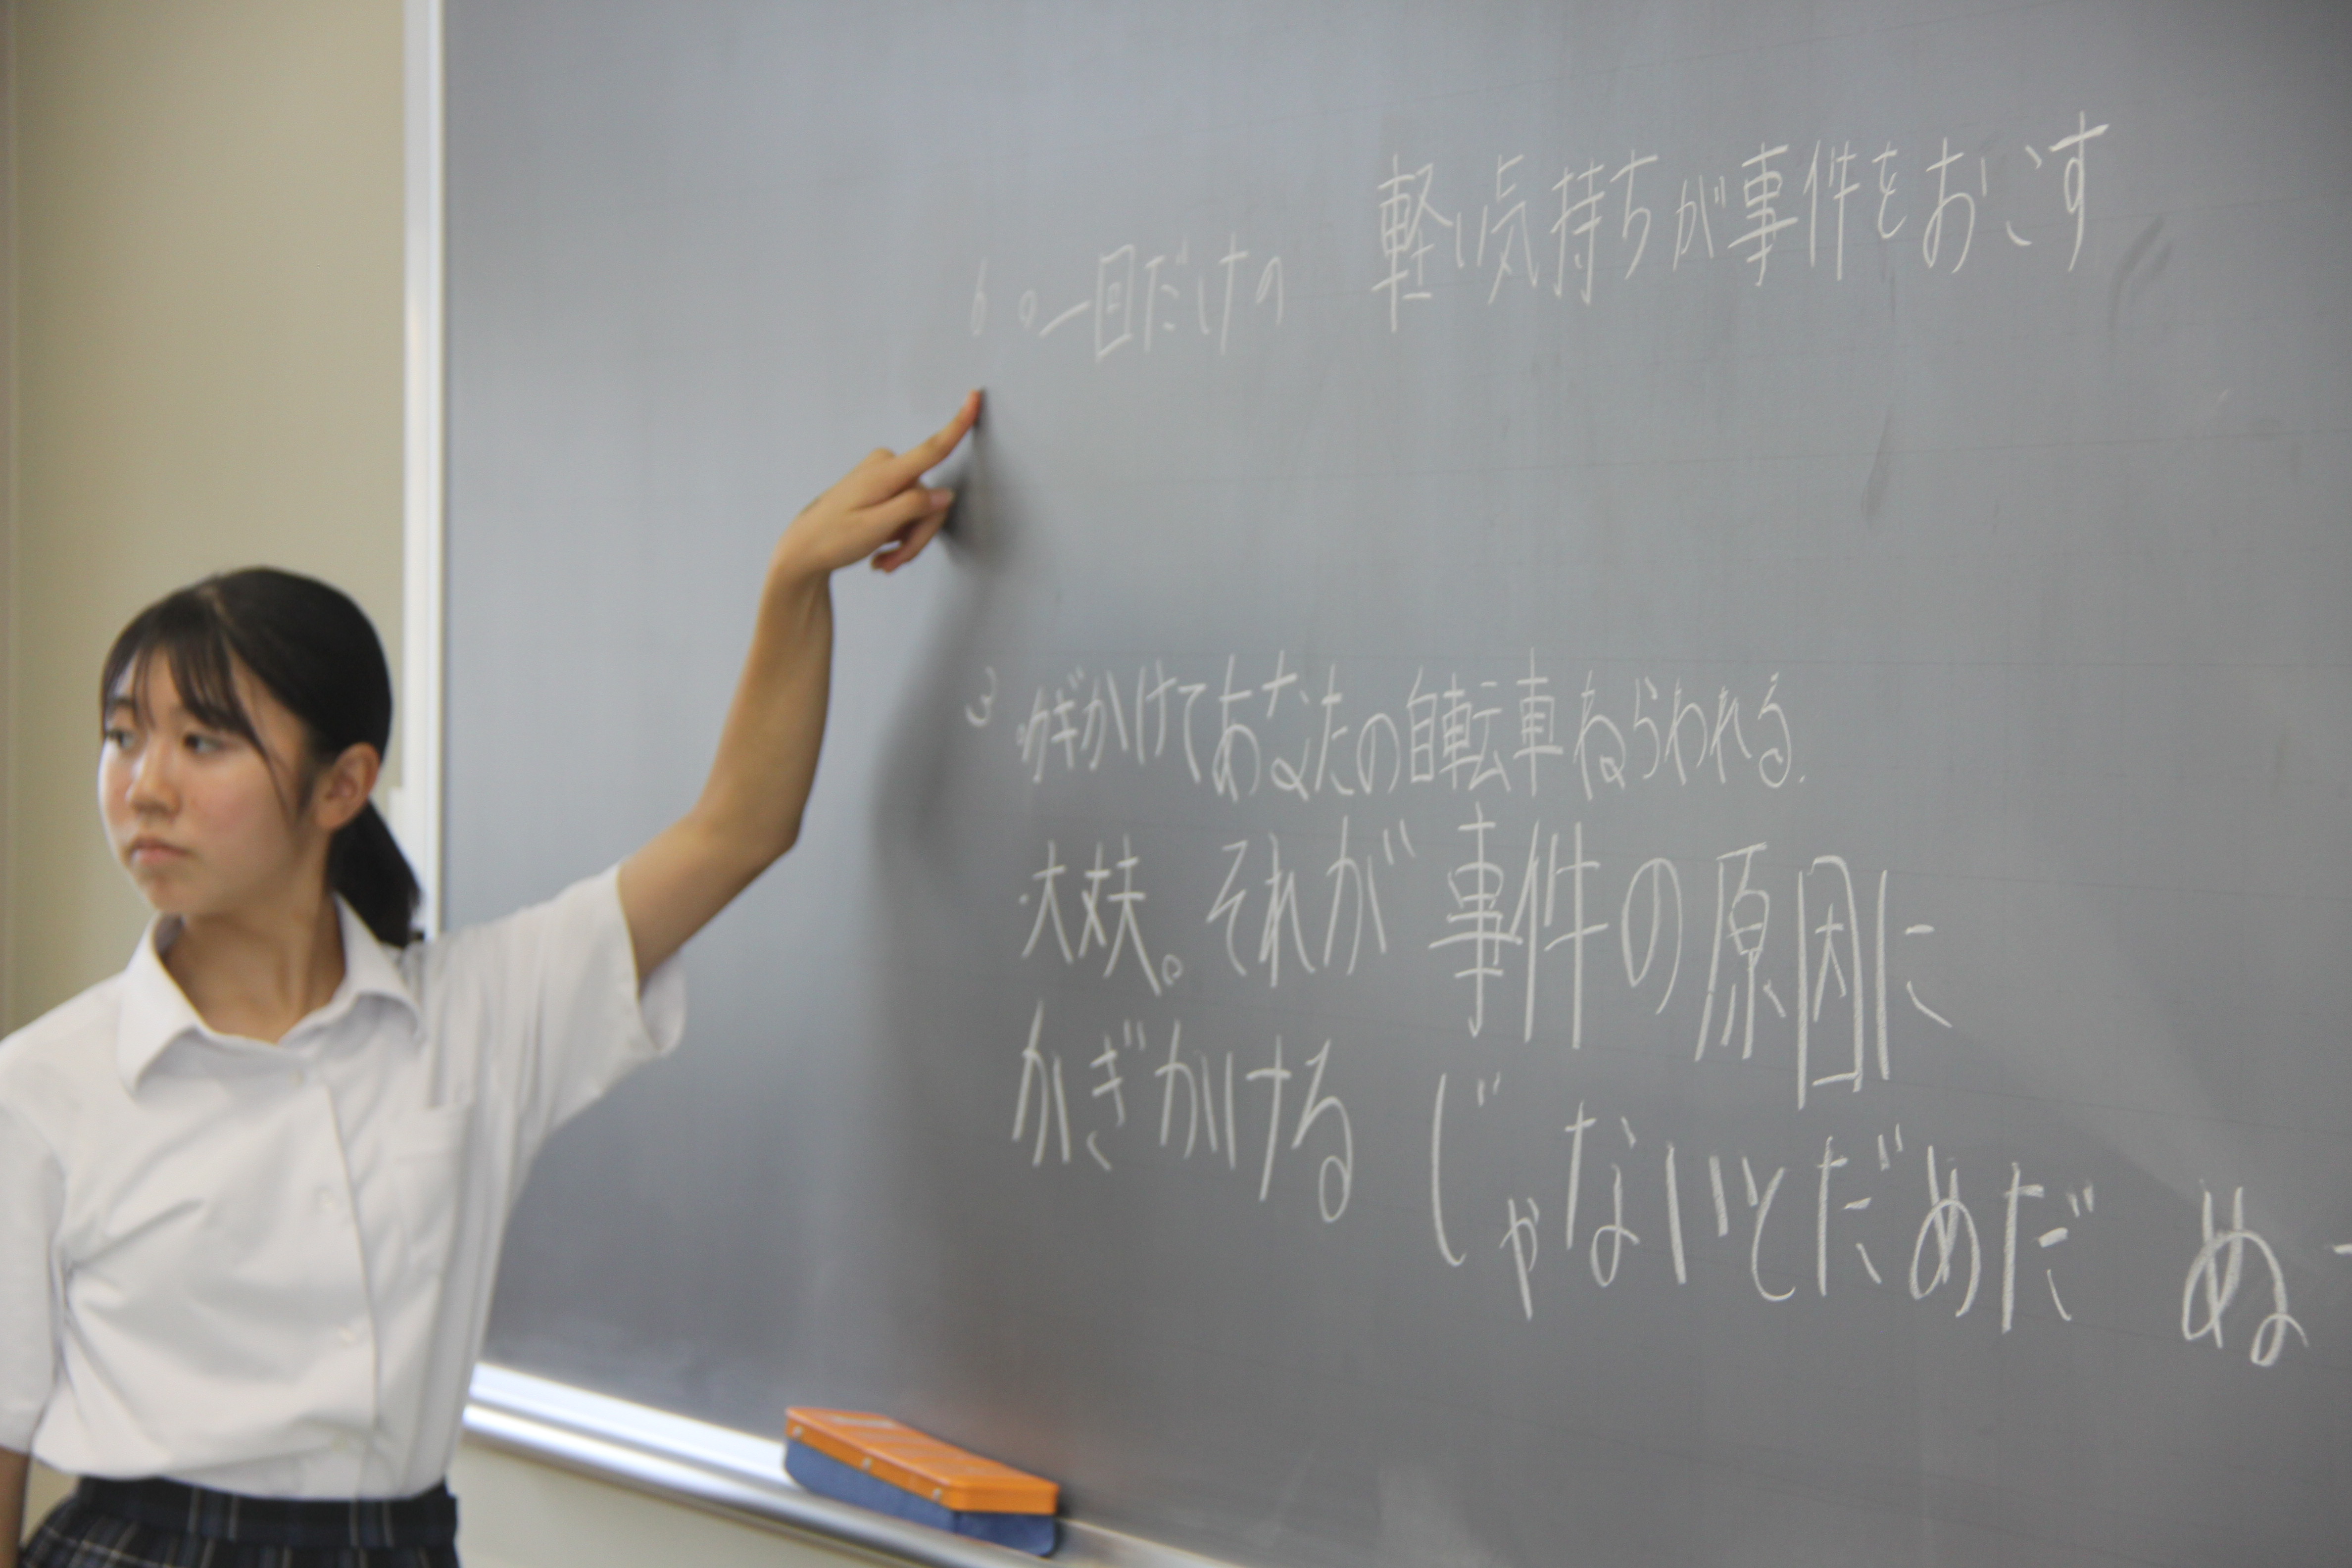 6 。一回だけの 軽い気持ちが事件をおこす
3 ・カギかけてあなたの自転車ねらわれる.
・大丈夫。それが事件の原因に
かぎかける じゃないとだめだ ぬ